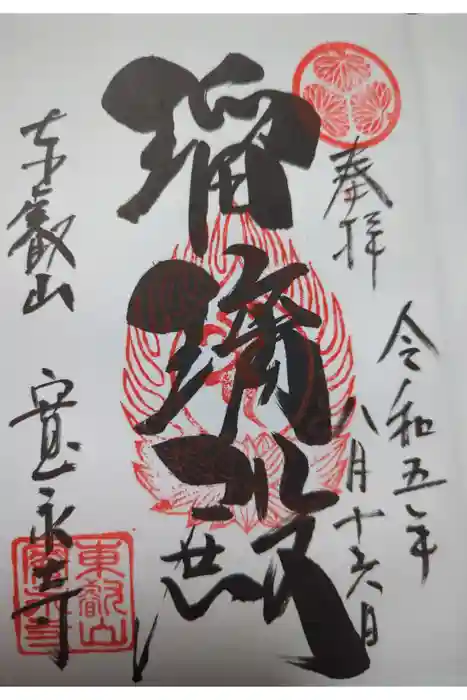 奉拝
令和五年
八月十六日
瑠璃殿
東叡山
寛永寺
東叡山